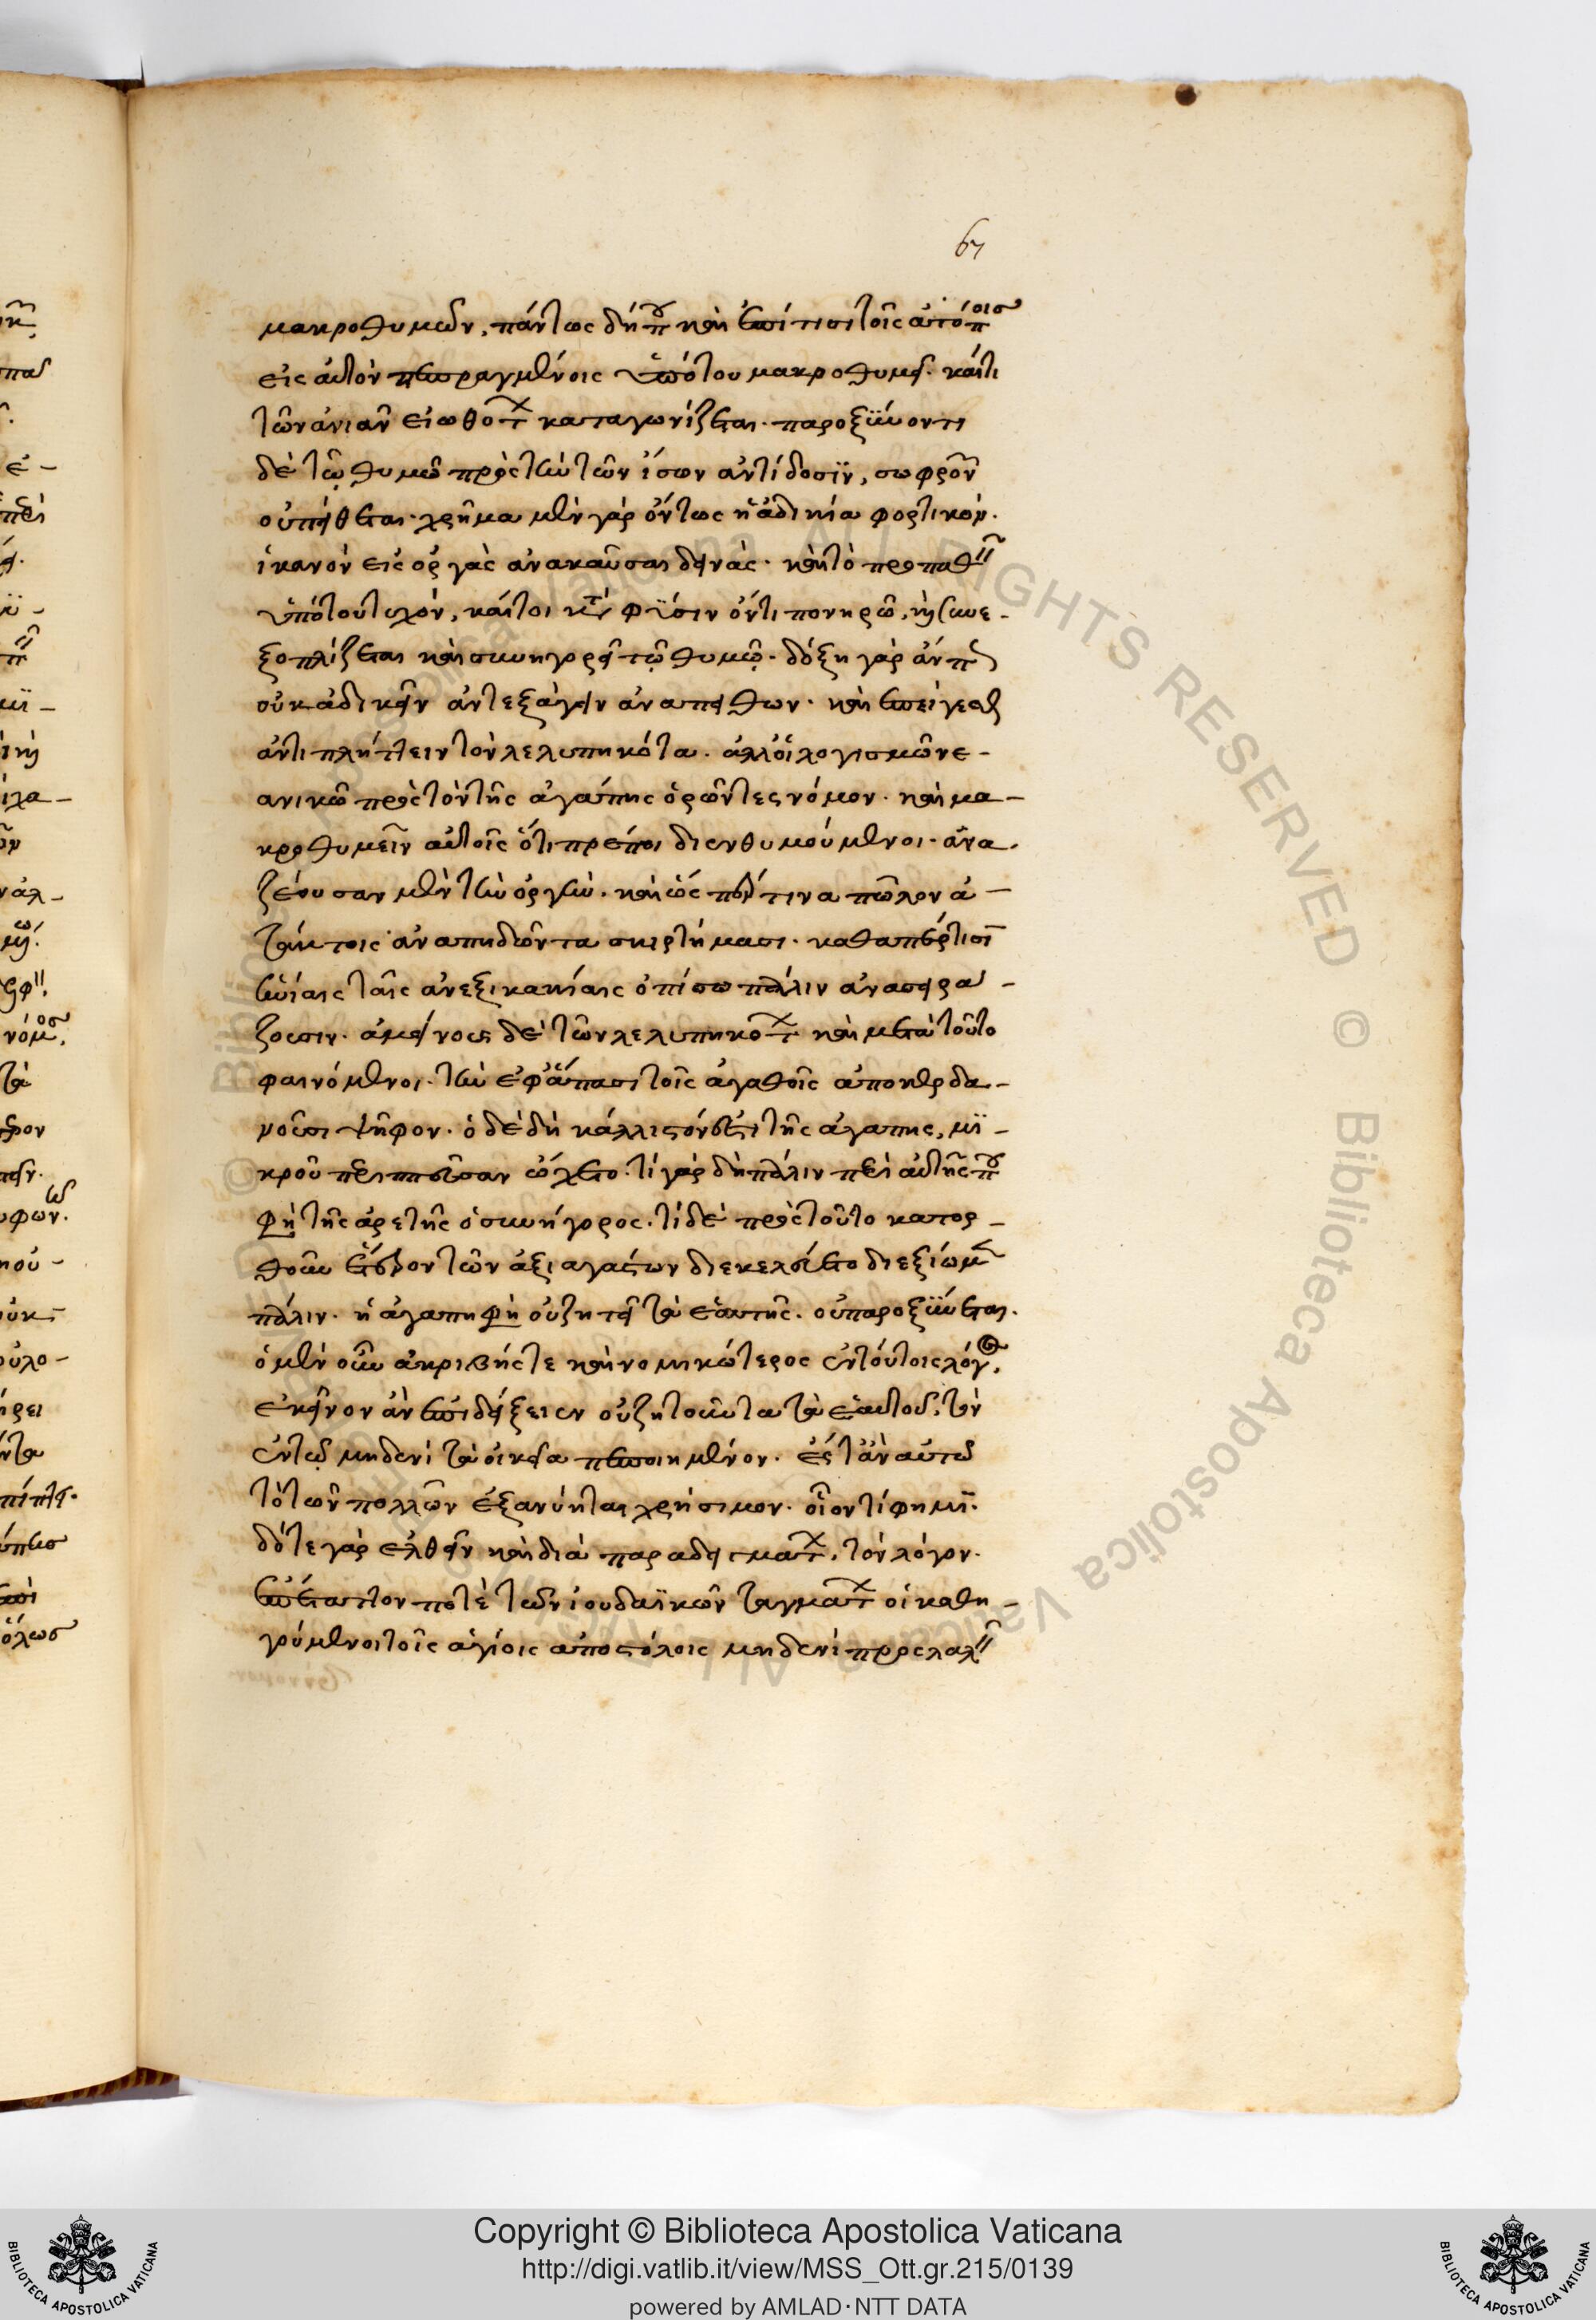 67
μακροθυμῶν, πάντως δήπου καὶ ἐπί τισι τοῖς ἀτόποις
εἰς αὐτὸν πεπραγμένοις ὑπό του μακροθυμεῖ. καί τι
τῶν ἀνιᾶν εἰωθότων καταγωνίζεται. παροξύνοντι
δὲ τῷ θυμῷ πρὸς τὴν τῶν ἴσων ἀντίδοσιν, σωφρονῶν
οὐ πείθεται. χρῆμα μὲν γὰρ ὄντως ἡ ἀδικία φορτικόν.
ἱκανὸν εἰς ὀργὰς ἀνακαῦσαι δεινάς. καὶ τὸ προπαθεῖν
ὑπό του τυχόν, καίτοι κατὰ φύσιν ὄντι πονηρῷ, συνε-
ξοπλίζεται καὶ συνηγορεῖ τῷ θυμῷ. δόξῃ γὰρ ἄν που
οὐκ ἀδικεῖν ἀντεξάγειν ἀναπείθων. καὶ ἐπείγεσθαι
ἀντιπλήττειν τὸν λελυπηκότα. ἀλλ' οἱ λογισμῷ νε-
ανικῷ πρὸς τὸν τῆς ἀγάπης ὁρῶντες νόμον. καὶ μα-
κροθυμεῖν αὐτοῖς ὅτι πρέποι διενθυμούμενοι. ἀνα-
ζέουσαν μὲν τὴν ὀργήν. καὶ ὡς περ τινα πῶλον ἀ-
τάκτοις ἀναπηδῶντα σκιρτήμασι. καθάπερ τισὶν
ἡνίαις ταῖς ἀνεξικακίαις ὀπίσω πάλιν ἀνασειρά-
ζουσιν. ἀμείνους δὲ τῶν λελυπηκότων καὶ μετὰ τοῦτο
φαινόμενοι. τὴν ἐφ' ἅπασι τοῖς ἀγαθοῖς ἀποκερδα-
νοῦσι ψῆφον. ὁ δὲ δὴ κάλλιστόν ἐστι τῆς ἀγάπης, μι-
κροῦ περιπτεῦσαν ᾤχετο. τί γὰρ δὴ πάλιν περὶ αὐτῆς που
φησὶ τῆς ἀρετῆς ὁ συνήγορος. τί δὲ πρὸς τοῦτο κατορ-
θοῦν ἕτερον τῶν ἀξιαγάστων διεκελεύετο διεξίωμεν
πάλιν. ἡ ἀγάπη φησὶν οὐ ζητεῖ τὰ ἑαυτῆς. οὐ παροξύνεται.
ὁ μὲν οὖν ἀκριβής τε καὶ νομικώτερος ἐν τούτοις λόγος,
ἐκεῖνον ἂν ἐπιδείξειεν οὐ ζητοῦντα τὰ ἑαυτοῦ, τὸν
ἐν τῷ μηδενὶ τὰ οἰκεῖα πεποιημένον. ἔς τ' ἂν αὐτῷ
τὸ τῶν πολλῶν ἐξανύηται χρήσιμον. οἷόν τί φημι.
δότε γὰρ ἐλθεῖν καὶ διὰ παραδειγμάτων, τὸν λόγον.
ἐπέταττον ποτὲ τῶν ἰουδαϊκῶν ταγμάτων οἱ καθη-
γούμενοι τοῖς ἁγίοις ἀποστόλοις μηδενὶ προσλαλεῖν
Copyright © Biblioteca Apostolica Vaticana
http://digi.vatlib.it/view/MSS_Ott.gr.215/0139
powered by AMLAD·NTT DATA